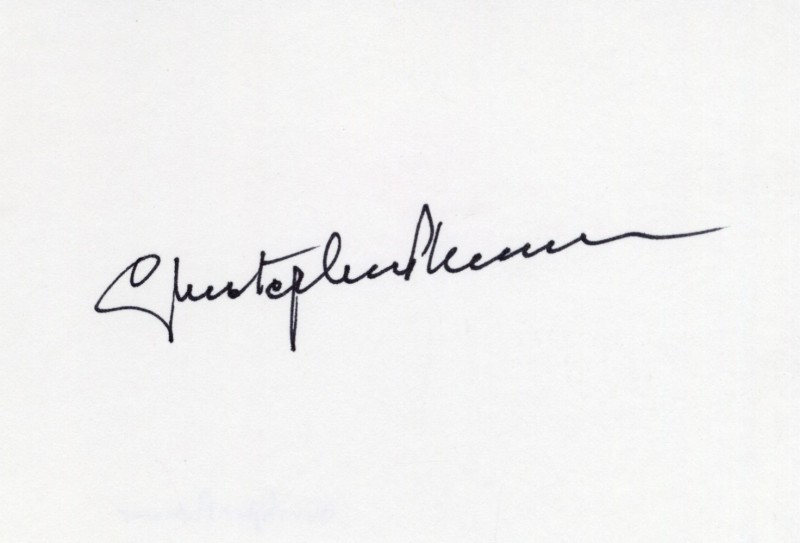 Christopher Plummer